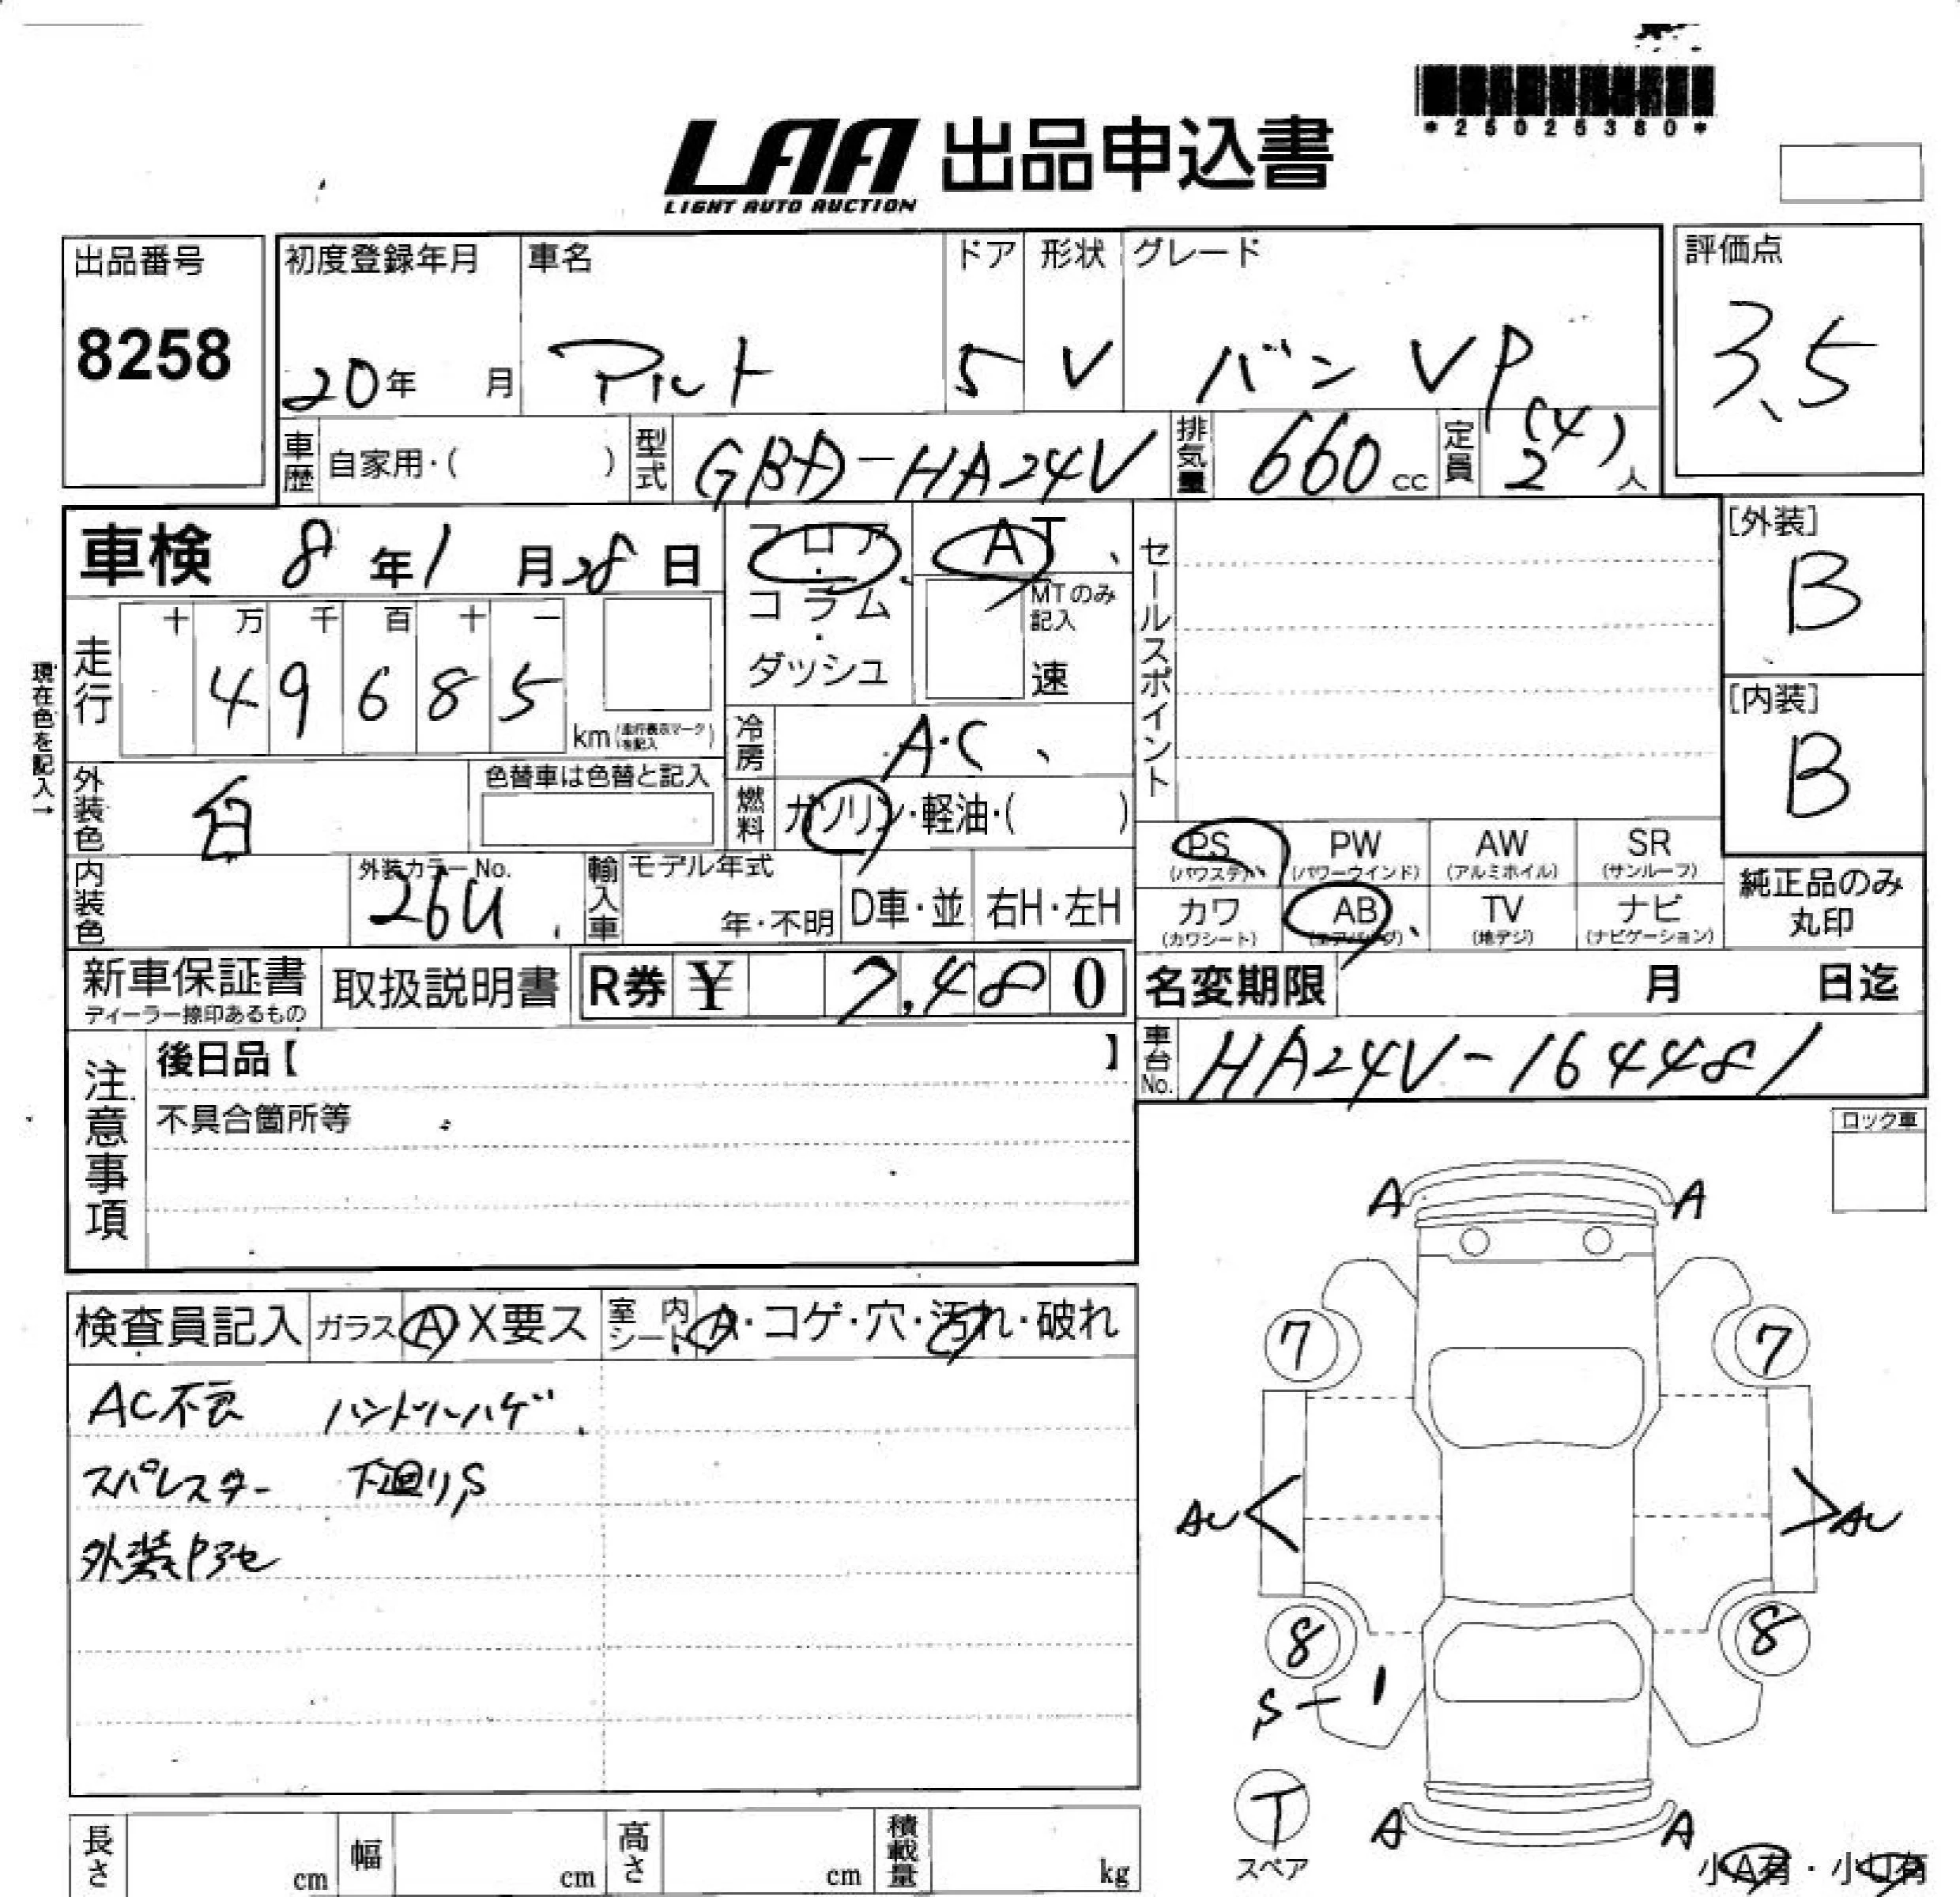 *25025380*
LAA 出品申込書
LIGHT AUTO AUCTION
出品番号 8258
初度登録年月 20年 月
車名 アルト
ドア 5
形状 V
グレード バン VP
評価点 3.5
車歴 自家用・( )
型式 GBD-HA24V
排気量 660 cc
定員 2(4)人
車検 8年1月28日
フロア・コラム・ダッシュ
AT
MTのみ記入
速
セールスポイント
[外装] B
[内装] B
走行 十万千百十一
49685 km (走行表示マークを記入)
現在色を記入→
冷房 A・C
燃料 ガソリン・軽油・( )
外装色 白
色替車は色替と記入
内装色
外装カラーNo. 26U
輸入車 モデル年式 年・不明
D車・並 右H・左H
PS (パワステ)
PW (パワーウインド)
AW (アルミホイル)
SR (サンルーフ)
カワ (カワシート)
AB (エアバッグ)
TV (地デジ)
ナビ (ナビゲーション)
純正品のみ丸印
新車保証書
ディーラー捺印あるもの
取扱説明書
R券 ¥ 7,480
名変期限 月 日迄
車台No. HA24V-164481
注意事項
後日品【 】
不具合箇所等
ロック車
検査員記入
ガラス A X要ス
室内シート A・コゲ・穴・汚れ・破れ
AC不良 ハンドルハゲ
下廻りS
A A
7 7
AU AU
8 8
S-1
T
スペア
A A
小A有・小U有
長さ cm
幅 cm
高さ cm
積載量 kg